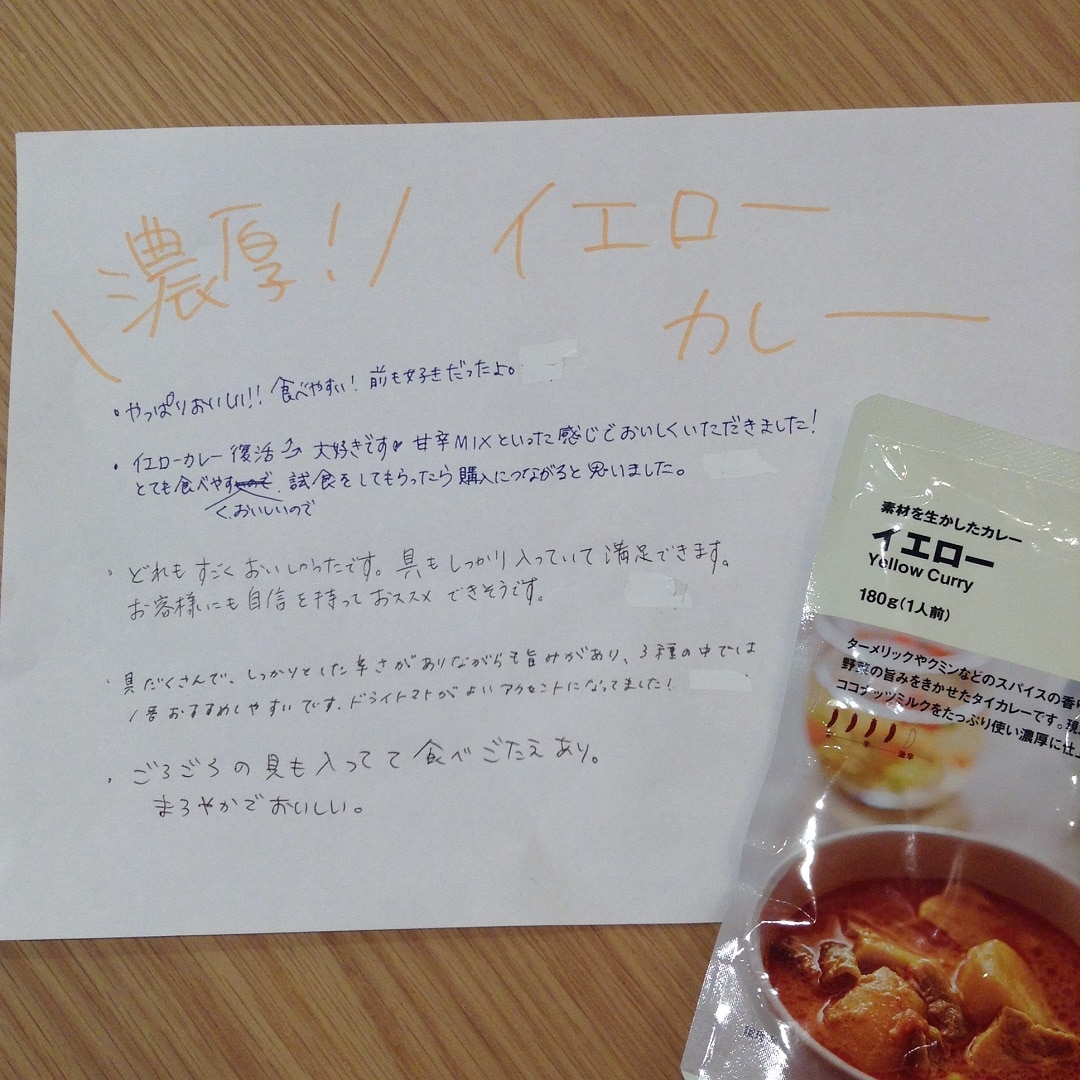 \濃厚！/ イエロー
カレー
・やっぱりおいしい!! 食べやすい! 前も好きだったよ。
・イエローカレー復活⤴ 大好きです♥ 甘辛MIXといった感じでおいしくいただきました!
とても食べやすく、おいしいので 試食をしてもらったら購入につながると思いました。
・どれもすごくおいしかったです。具もしっかり入っていて満足できます。
お客様にも自信を持っておススメできそうです。
・具だくさんで、しっかりとした辛さがありながらも旨みがあり、3種の中では
1番おすすめしやすいです。ドライトマトがよいアクセントになってました!
・ごろごろの具も入ってて食べごたえあり。
まろやかでおいしい。
素材を生かしたカレー
イエロー
Yellow Curry
180g(1人前)
ターメリックやクミンなどのスパイスの香り
野菜の旨みをきかせたタイカレーです。現
ココナッツミルクをたっぷり使い濃厚に仕上